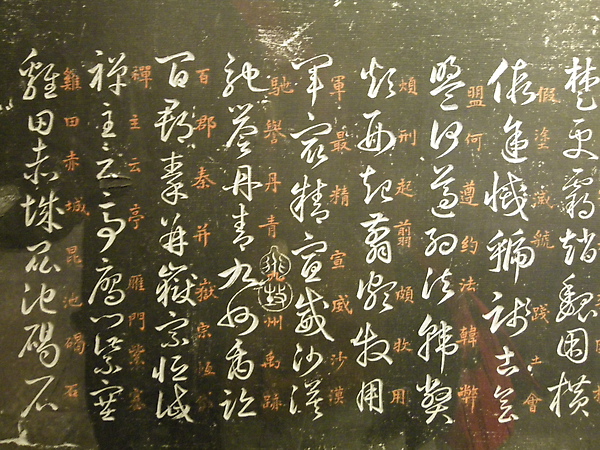 楚更霸趙魏困橫
假塗滅虢踐土會
假途滅虢踐土會
盟何遵約法韓弊
盟何遵約法韓弊
煩刑起翦頗牧用
煩刑起翦頗牧用
軍最精宣威沙漠
軍最精宣威沙漠
馳譽丹青九州禹跡
馳譽丹青九州禹跡
百郡秦并嶽宗恆
百郡秦并嶽宗恆岱
禪主云亭雁門紫塞
禪主云亭雁門紫塞
雞田赤城昆池碣石
雞田赤城昆池碣石